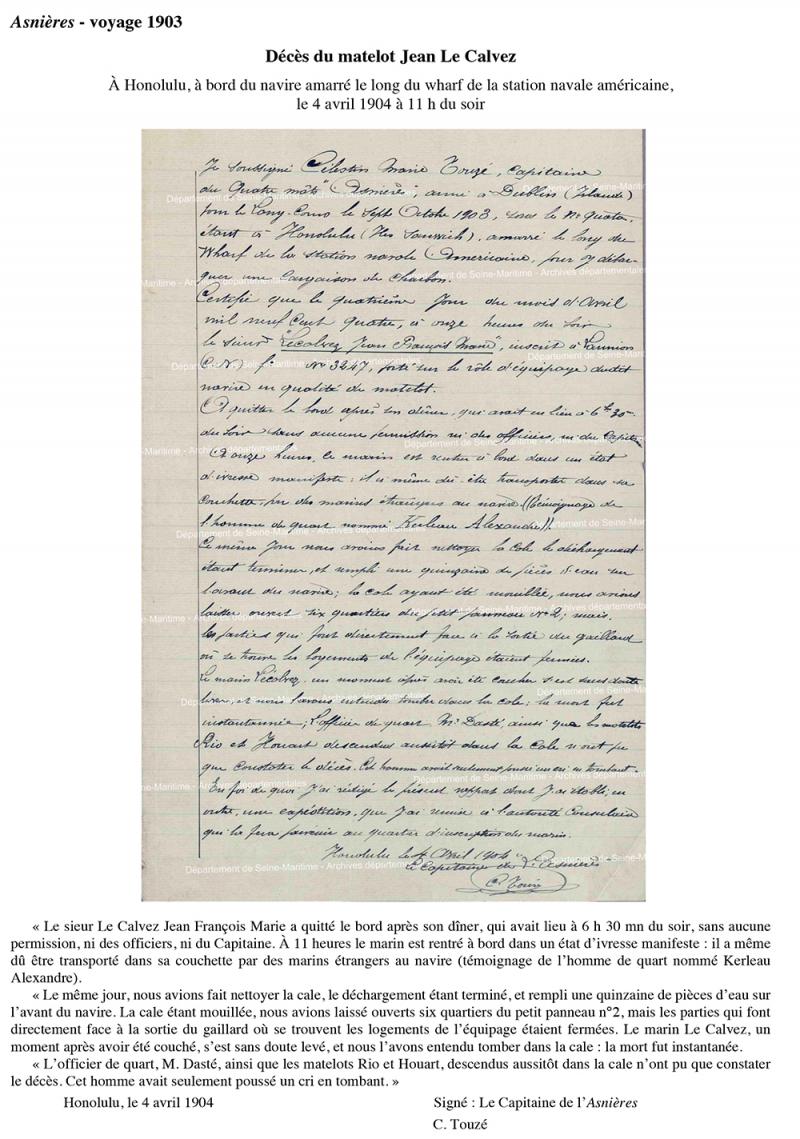 Asnières - voyage 1903
Décès du matelot Jean Le Calvez
À Honolulu, à bord du navire amarré le long du wharf de la station navale américaine,
le 4 avril 1904 à 11 h du soir
Je soussigné Célestin Marie Touzé, Capitaine
du Quatre mâts "Asnières", armé à Dublin (Irlande)
pour le Long-Cours le Sept Octobre 1903, sous le N° Quatre,
étant à Honolulu (Iles Sandwich), amarré le long du
Wharf de la station navale Américaine, pour y débar-
quer une cargaison de charbon.
Certifie que le quatrième jour du mois d'Avril
mil neuf Cent quatre, à onze heures du soir
le sieur "Lecalvez Jean François Marie", inscrit à Lannion
N° 3247, porté sur le rôle d'équipage dudit
navire en qualité de matelot.
A quitter le bord après son dîner, qui avait eu lieu à 6h 30m
du soir sans aucune permission ni des officiers, ni du Capitaine
A onze heures, le marin est rentré à bord dans un état
d'ivresse manifeste : il a même dû être transporté dans sa
couchette, par des marins étrangers au navire (Témoignage de
l'homme de quart nommé Kerleau Alexandre)
Ce même jour nous avions fait nettoyer la cale le déchargement
étant terminer, et rempli une quinzaine de pièces d'eau sur
l'avant du navire ; la cale ayant été mouillée, nous avions
laisser ouvert six quartiers du petit panneau N° 2 ; mais
les parties qui font directement face à la sortie du gaillard
où se trouve les logements de l'équipage étaient fermées.
Le marin Lécalvez un moment après avoir été coucher s'est sans doute
lever et nous l'avons entendu tomber dans la cale : la mort fut
instantannée ; l'officier de quart Mr Dasté, ainsi que les matelots
Rio et Houart descendus aussitôt dans la cale n'ont pu
que constater le décès. Cet homme avait seulement poussé un cri en tombant.
En foi de quoi j'ai rédigé le présent rapport dont j'ai établi, en
outre, une expédition, que j'ai remise à l'autorité Consulaire
qui la fera parvenir au quartier d'inscription du marin.
Honolulu le 4 Avril 1904
Le Capitaine de l'"Asnières"
C. Touzé
Département de Seine-Maritime - Archives départementales
« Le sieur Le Calvez Jean François Marie a quitté le bord après son dîner, qui avait lieu à 6 h 30 mn du soir, sans aucune
permission, ni des officiers, ni du Capitaine. À 11 heures le marin est rentré à bord dans un état d’ivresse manifeste : il a même
dû être transporté dans sa couchette par des marins étrangers au navire (témoignage de l’homme de quart nommé Kerleau
Alexandre).
« Le même jour, nous avions fait nettoyer la cale, le déchargement étant terminé, et rempli une quinzaine de pièces d’eau sur
l’avant du navire. La cale étant mouillée, nous avions laissé ouverts six quartiers du petit panneau n°2, mais les parties qui font
directement face à la sortie du gaillard où se trouvent les logements de l’équipage étaient fermées. Le marin Le Calvez, un
moment après avoir été couché, s’est sans doute levé, et nous l’avons entendu tomber dans la cale : la mort fut instantanée.
« L’officier de quart, M. Dasté, ainsi que les matelots Rio et Houart, descendus aussitôt dans la cale n’ont pu que constater
le décès. Cet homme avait seulement poussé un cri en tombant. »
Honolulu, le 4 avril 1904
Signé : Le Capitaine de l’Asnières
C. Touzé